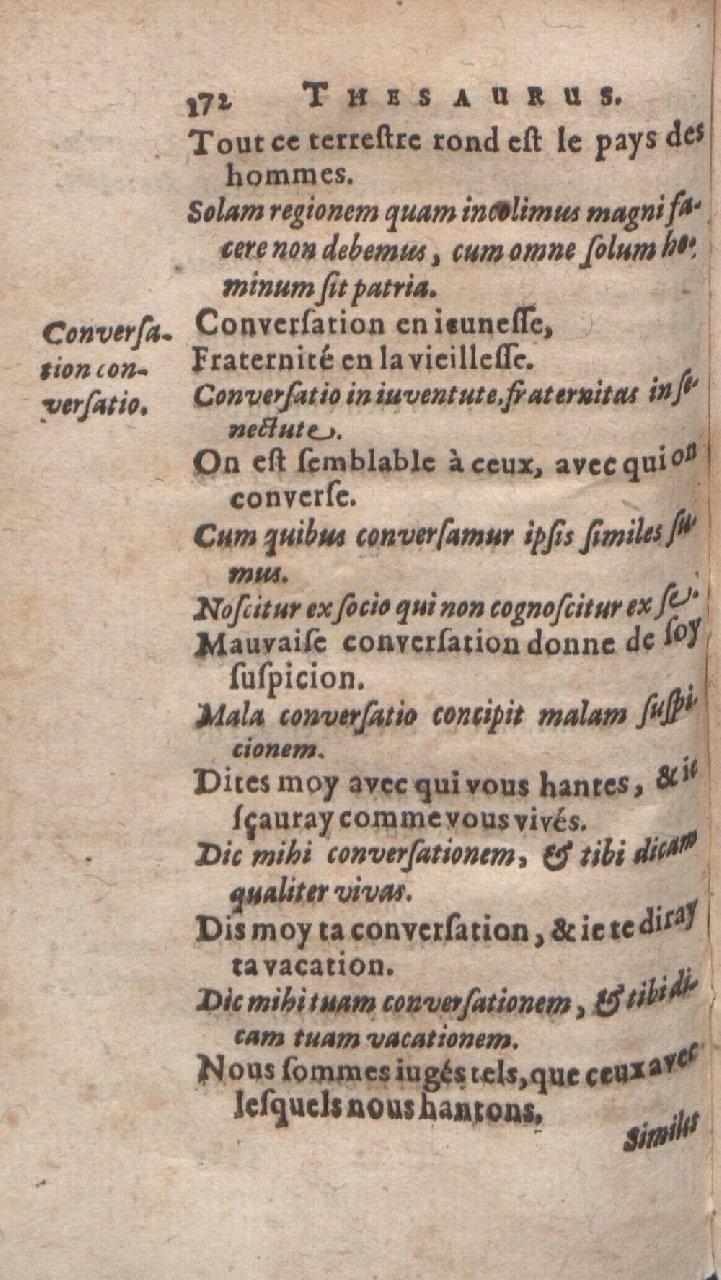 172 THESAURUS.
Tout ce terreſtre rond eſt le pays des
hommes.
Solam regionem quam incolimus magni fa-
cere non debemus, cum omne ſolum ho-
minum ſit patria.
Converſa-
tion con-
verſatio.
Converſation en ieuneſſe,
Fraternité en la vieilleſſe.
Converſatio in iuventute, fraternitas in ſe-
nectute.
On eſt ſemblable à ceux, avec qui on
converſe.
Cum quibus converſamur ipſis ſimiles ſu-
mus.
Noſcitur ex ſocio qui non cognoſcitur ex ſe.
Mauvaiſe converſation donne de ſoy
ſuſpicion.
Mala converſatio concipit malam ſuſpi-
cionem.
Dites moy avec qui vous hantes, & ie
ſçauray comme vous vivés.
Dic mihi converſationem, & tibi dicam
qualiter vivas.
Dis moy ta converſation, & ie te diray
ta vacation.
Dic mihi tuam converſationem, & tibi di-
cam tuam vacationem.
Nous ſommes iugés tels, que ceux avec
leſquels nous hantons.
Similes